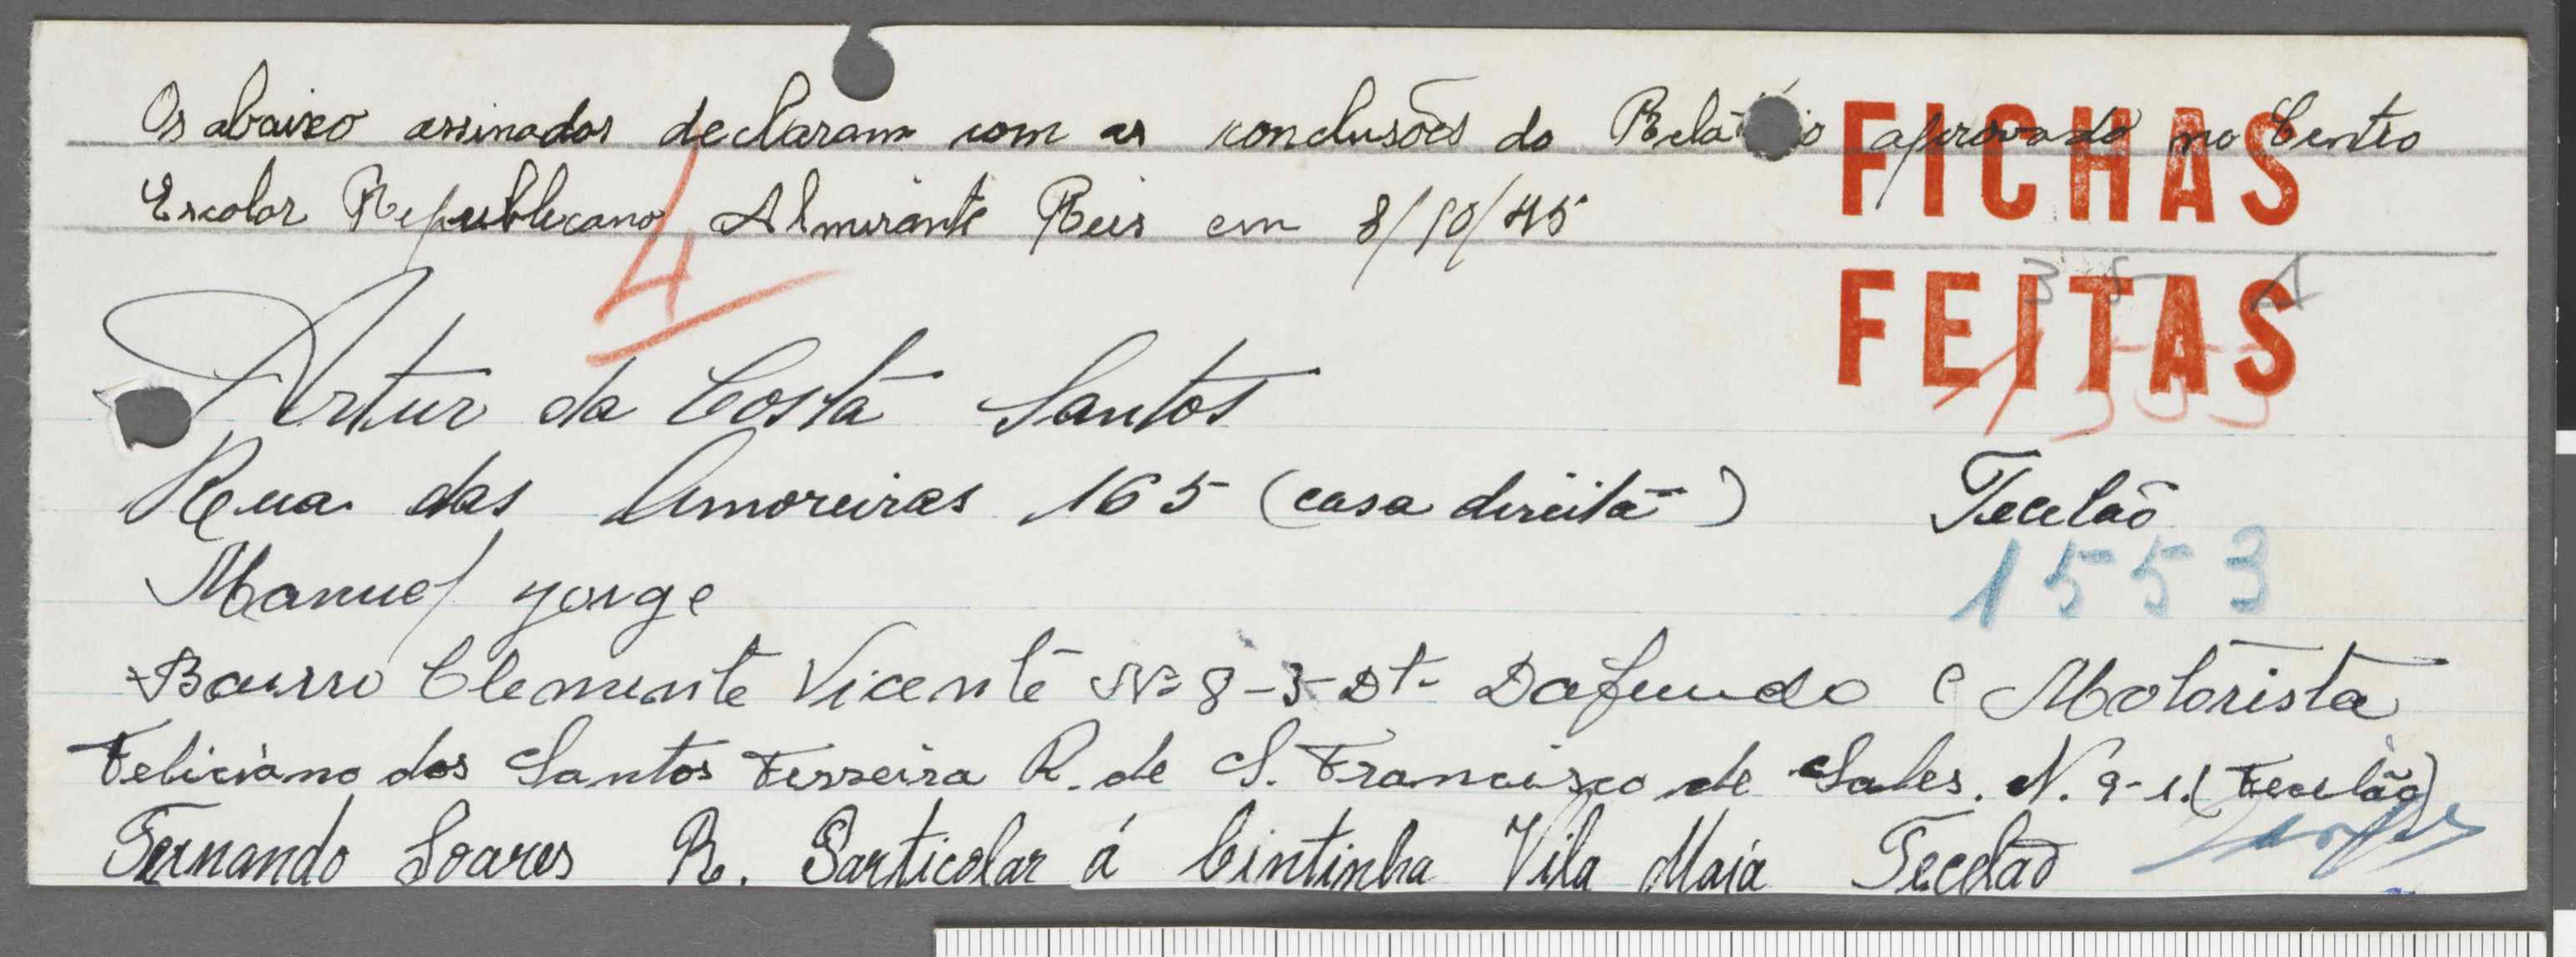 Os abaixo assinados declaram com as conclusões do Relatório aprovado no Centro
Escolar Republicano Almirante Reis em 8/10/45
FICHAS
FEITAS
4
35 A
Artur da Costa Santos
Rua das Amoreiras 165 (casa direita) Tecelão
1553
Manuel Jorge
Bairro Clemente Vicente Nº 8-3-Dt- Dafundo e Motorista
Feliciano dos Santos Ferreira R. de S. Francisco de Sales. N. 9-1. (Tecelão)
Fernando Soares R. Particolar á Cintinha Vila Maia Tecelão